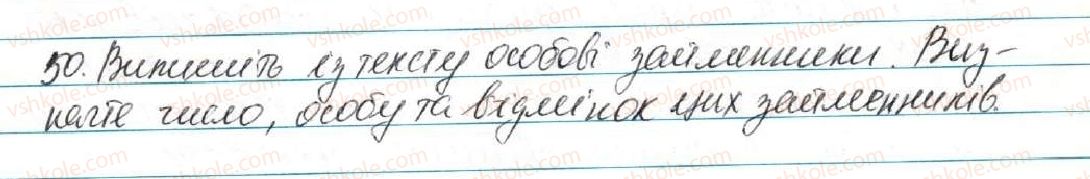 50. Випишіть із тексту особові займенники. Виз-
начте число, особу та відмінок цих займенників.